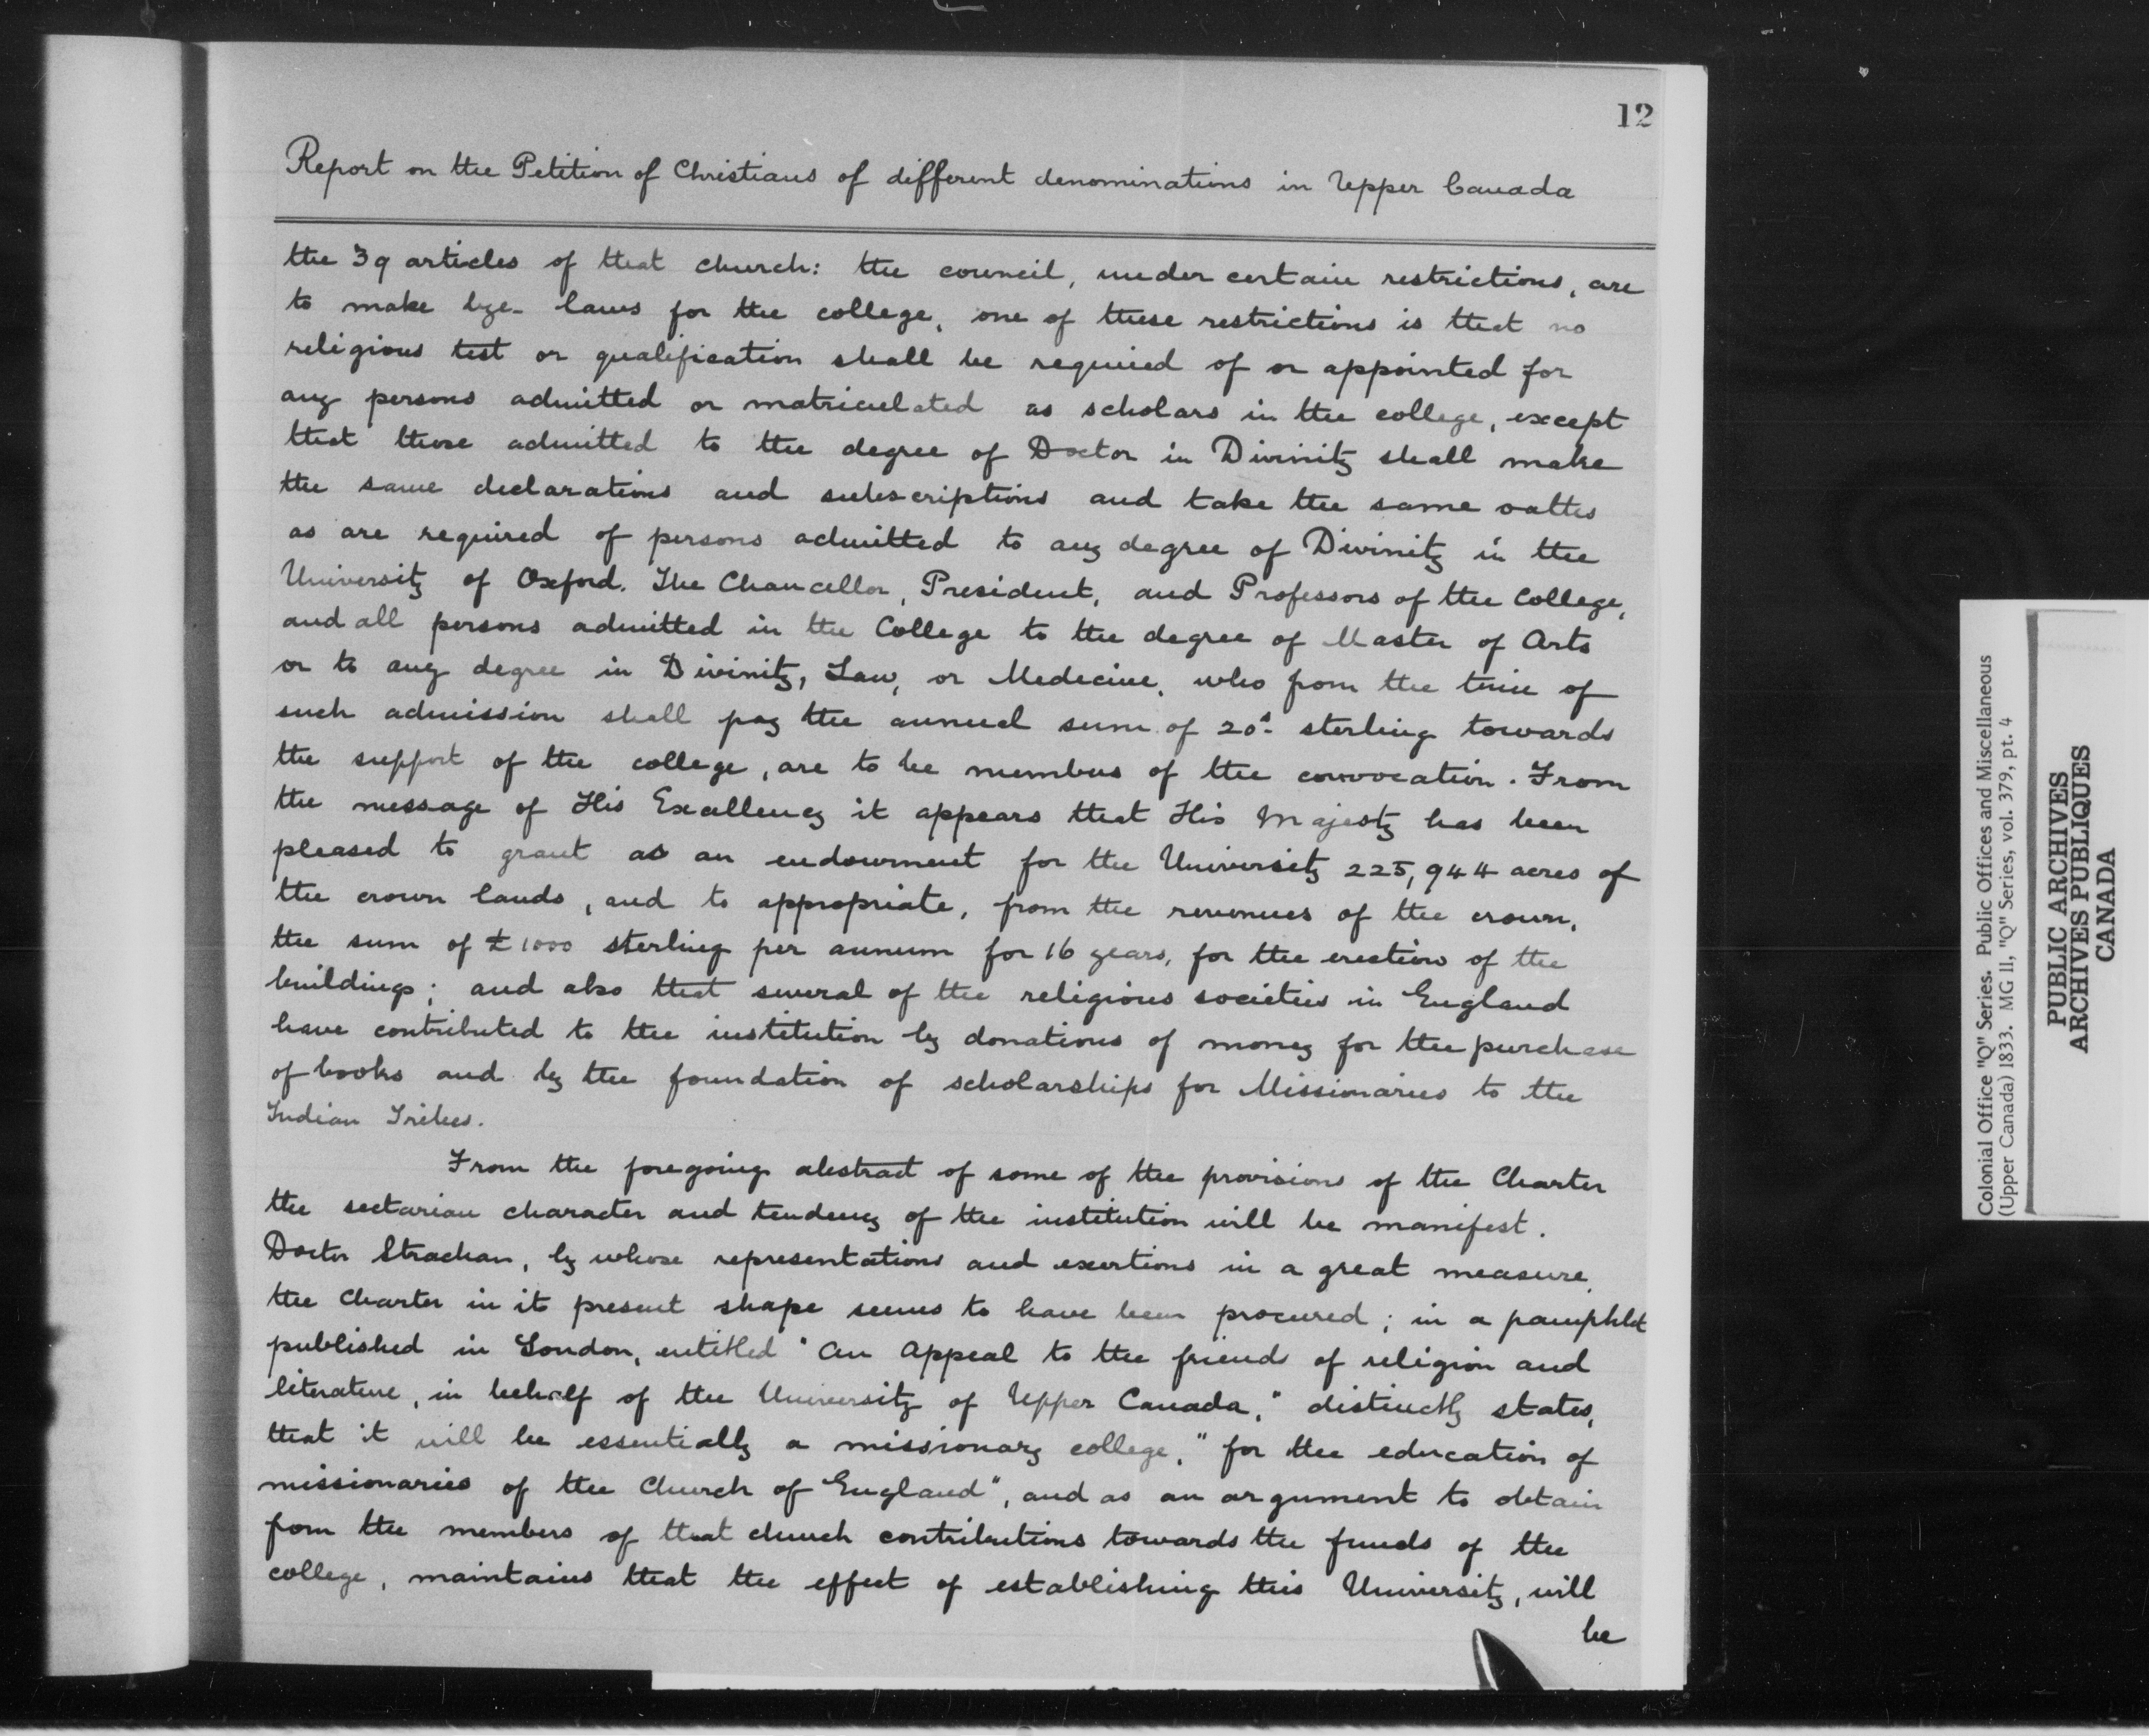 12
Report on the Petition of Christians of different denominations in Upper Canada
the 39 articles of that church: the council, under certain restrictions, are
to make bye-laws for the college, one of these restrictions is that no
religious test or qualification shall be required of or appointed for
any persons admitted or matriculated as scholars in the college, except
that those admitted to the degree of Doctor in Divinity shall make
the same declarations and subscriptions and take the same oaths
as are required of persons admitted to any degree of Divinity in the
University of Oxford. The Chancellor, President, and Professors of the College,
and all persons admitted in the College to the degree of Master of Arts
or to any degree in Divinity, Law, or Medecine, who from the time of
such admission shall pay the annual sum of 20s. sterling towards
the support of the college, are to be members of the convocation. From
the message of His Excellency it appears that His Majesty has been
pleased to grant as an endowment for the University 225,944 acres of
the crown lands, and to appropriate, from the revenues of the crown,
the sum of £1000 sterling per annum for 16 years, for the erection of the
buildings; and also that several of the religious societies in England
have contributed to the institution by donations of money for the purchase
of books and by the foundation of scholarships for Missionaries to the
Indian Tribes.
From the foregoing abstract of some of the provisions of the Charter
the sectarian character and tendency of the institution will be manifest.
Doctor Strachan, by whose representations and exertions in a great measure,
the Charter in it present shape seems to have been procured; in a pamphlet
published in London, entitled "An Appeal to the friends of religion and
literature, in behalf of the University of Upper Canada," distinctly states,
that it will be essentially a missionary college, "for the education of
missionaries of the Church of England", and as an argument to obtain
from the members of that church contributions towards the funds of the
college, maintains that the effect of establishing this University, will
be
Colonial Office "Q" Series. Public Offices and Miscellaneous
(Upper Canada) 1833. MG 11, "Q" Series, vol. 379, pt. 4
PUBLIC ARCHIVES
ARCHIVES PUBLIQUES
CANADA